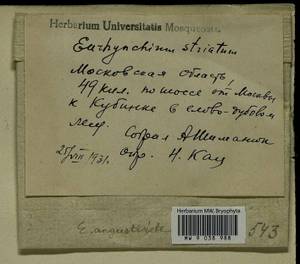 Herbarium Universitatis Mosquensis
Eurhynchium striatum
Московская область,
49 кил. по шоссе от Москвы
к Кубинке в елово-дубовом
лесу.
Собрал А. Шиманюк
25/VIII 1931. Опр. Н. Кац
E. angustirete
543
Herbarium MW, Bryophyta
MW 9 038 988